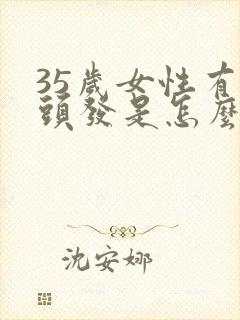 35歲女性有
頭發是怎麼
沈安娜